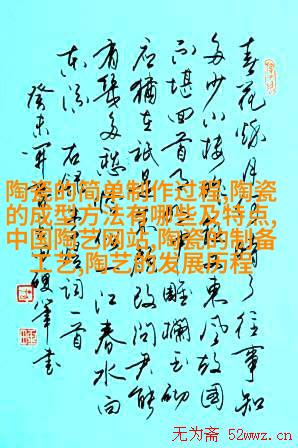 春花秋月了往事知
多少小楼东風故国
不堪回首雕欄玉砌
应猶在祗是改问君能
有几多愁一江春水向
东流 词一首
癸未年
陶瓷的简单制作过程,陶瓷
的成型方法有哪些及特点,
中国陶艺网站,陶瓷的制备
工艺,陶艺的发展历程
无为斋 52wwz.cn